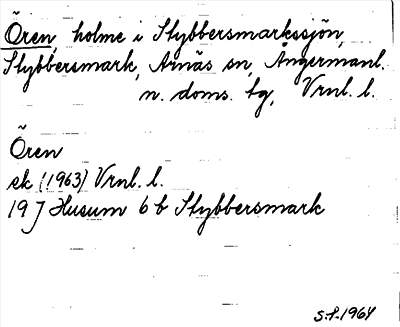 Ören, holme i Stybbersmarkssjön,
Stybbersmark, Arnäs sn, Ångermanl.
n. doms. tg, Vrnl. l.
Ören
ek (1963) Vrnl. l.
19 J Husum 6 b Stybbersmark
S.f. 1964